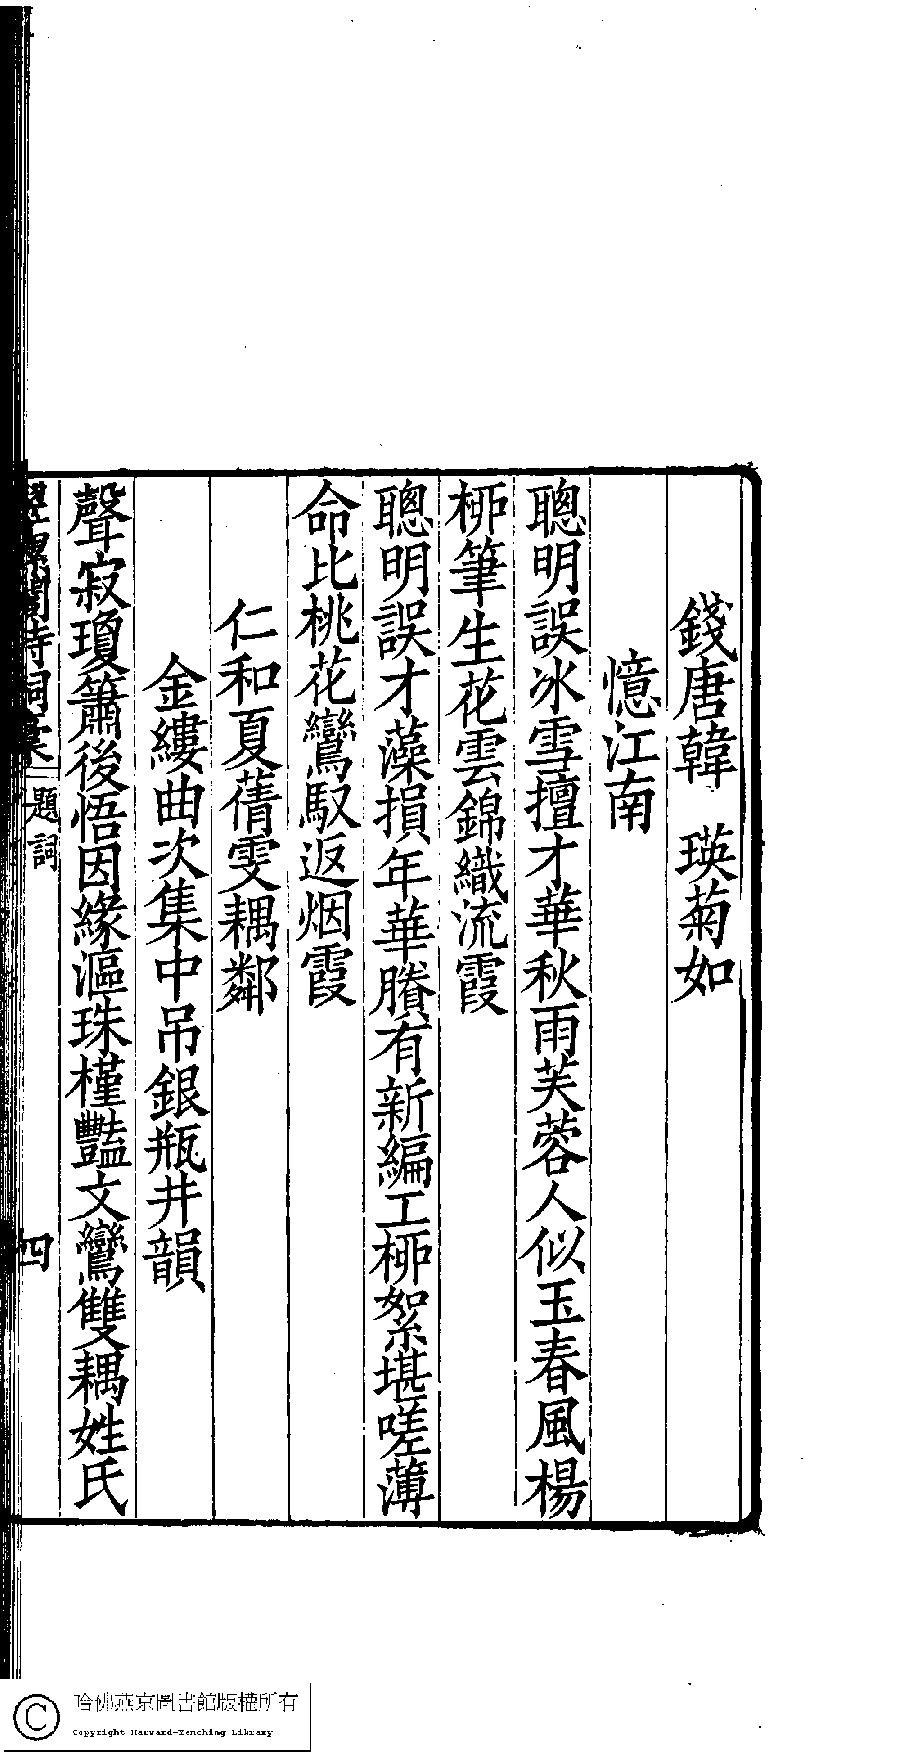 錢唐韓　瑛菊如
憶江南
聰明誤冰雪擅才華秋雨芙蓉人似玉春風楊
桺筆生花雲錦織流霞
聰明誤才藻損年華賸有新編工桺絮堪嗟薄
命比桃花鸞馭返烟霞
仁和夏蒨雯耦鄰
金縷曲次集中吊銀瓶井韻
聲寂瓊簫後悟因緣漚珠槿豔文鸞雙耦姓氏
閣詩詞稾
題詞
四
哈佛燕京圖書館版權所有
Copyright Harvard-Yenching Library